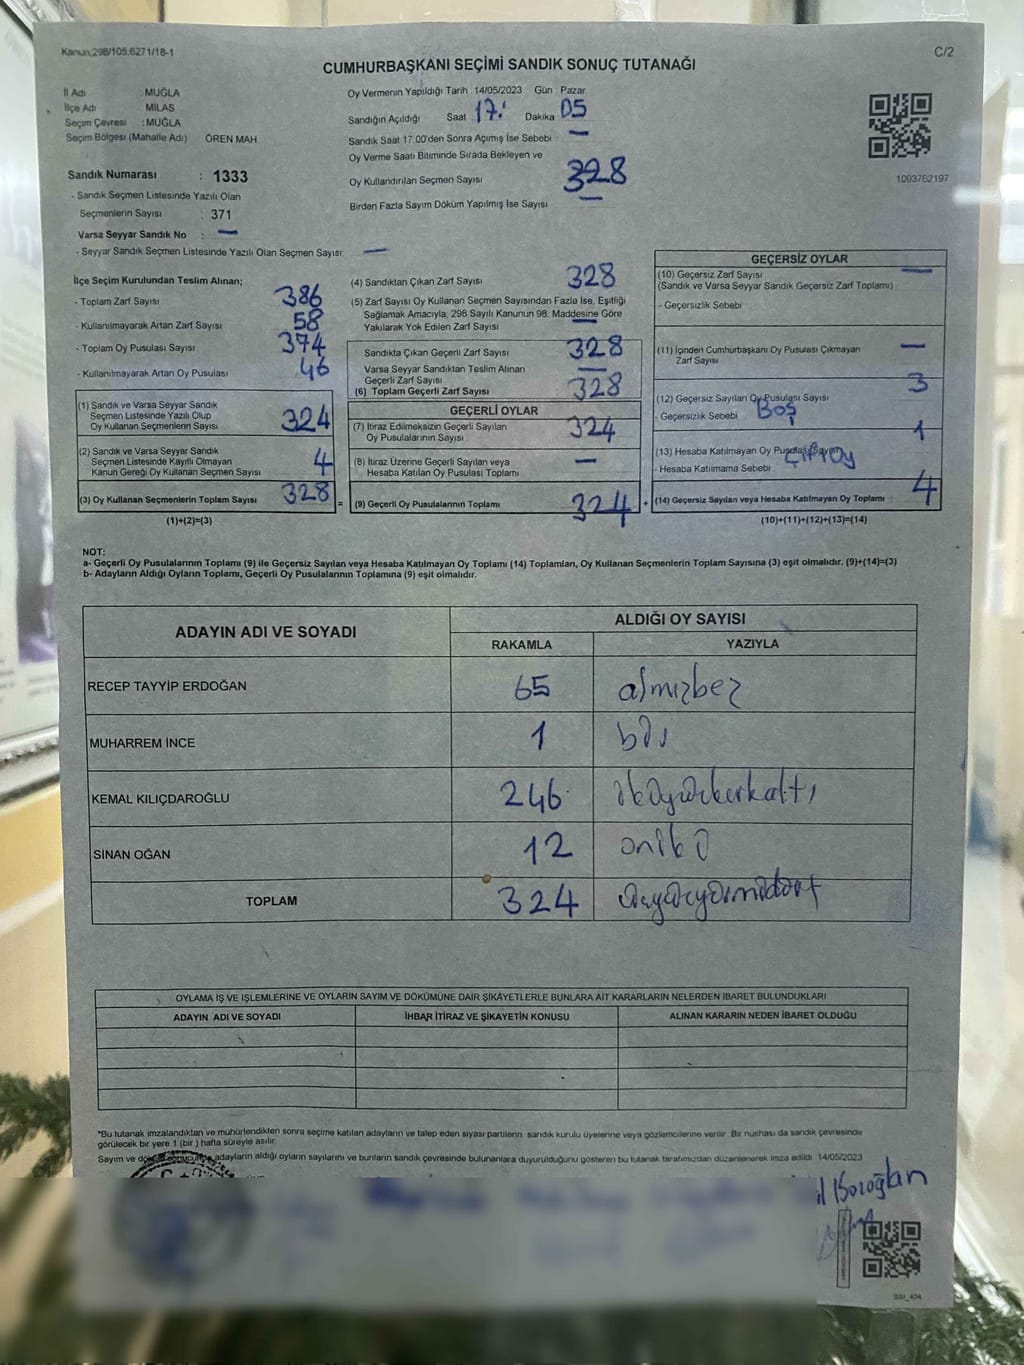 Kanun:298/105,6271/18-1
C/2
CUMHURBAŞKANI SEÇİMİ SANDIK SONUÇ TUTANAĞI
İl Adı : MUĞLA
İlçe Adı : MİLAS
Seçim Çevresi : MUĞLA
Seçim Bölgesi (Mahalle Adı) ÖREN MAH
Oy Vermenin Yapıldığı Tarih 14/05/2023 Gün Pazar
Sandığın Açıldığı Saat 17: Dakika 05
Sandık Saat 17:00'den Sonra Açımış İse Sebebi —
Oy Verme Saati Bitiminde Sırada Bekleyen ve
Oy Kullandırılan Seçmen Sayısı 328
Birden Fazla Sayım Döküm Yapılmış İse Sayısı —
1093762197
Sandık Numarası : 1333
- Sandık Seçmen Listesinde Yazılı Olan
Seçmenlerin Sayısı : 371
Varsa Seyyar Sandık No : —
- Seyyar Sandık Seçmen Listesinde Yazılı Olan Seçmen Sayısı: —
İlçe Seçim Kurulundan Teslim Alınan;
- Toplam Zarf Sayısı 386
- Kullanılmayarak Artan Zarf Sayısı 58
- Toplam Oy Pusulası Sayısı 374
- Kullanılmayarak Artan Oy Pusulası 46
(1) Sandık ve Varsa Seyyar Sandık
Seçmen Listesinde Yazılı Olup
Oy Kullanan Seçmenlerin Sayısı 324
(2) Sandık ve Varsa Seyyar Sandık
Seçmen Listesinde Kayıtlı Olmayan
Kanun Gereği Oy Kullanan Seçmen Sayısı 4
(3) Oy Kullanan Seçmenlerin Toplam Sayısı 328 =
(1)+(2)=(3)
(4) Sandıktan Çıkan Zarf Sayısı 328
(5) Zarf Sayısı Oy Kullanan Seçmen Sayısından Fazla İse, Eşitliği
Sağlamak Amacıyla, 298 Sayılı Kanunun 98. Maddesine Göre
Yakılarak Yok Edilen Zarf Sayısı —
Sandıkta Çıkan Geçerli Zarf Sayısı 328
Varsa Seyyar Sandıktan Teslim Alınan
Geçerli Zarf Sayısı —
(6) Toplam Geçerli Zarf Sayısı 328
GEÇERLİ OYLAR
(7) İtiraz Edilmeksizin Geçerli Sayılan
Oy Pusulalarının Sayısı 324
(8) İtiraz Üzerine Geçerli Sayılan veya
Hesaba Katılan Oy Pusulası Toplamı —
(9) Geçerli Oy Pusulalarının Toplamı 324 +
GEÇERSİZ OYLAR
(10) Geçersiz Zarf Sayısı —
(Sandık ve Varsa Seyyar Sandık Geçersiz Zarf Toplamı)
- Geçersizlik Sebebi
(11) İçinden Cumhurbaşkanı Oy Pusulası Çıkmayan
Zarf Sayısı —
(12) Geçersiz Sayılan Oy Pusulası Sayısı 3
- Geçersizlik Sebebi Boş
(13) Hesaba Katılmayan Oy Pusulası Sayısı 1
- Hesaba Katılmama Sebebi Çift Oy
(14) Geçersiz Sayılan veya Hesaba Katılmayan Oy Toplamı : 4
(10)+(11)+(12)+(13)=(14)
NOT:
a- Geçerli Oy Pusulalarının Toplamı (9) ile Geçersiz Sayılan veya Hesaba Katılmayan Oy Toplamı (14) Toplamları, Oy Kullanan Seçmenlerin Toplam Sayısına (3) eşit olmalıdır. (9)+(14)=(3)
b- Adayların Aldığı Oyların Toplamı, Geçerli Oy Pusulalarının Toplamına (9) eşit olmalıdır.
ADAYIN ADI VE SOYADI
ALDIĞI OY SAYISI
RAKAMLA YAZIYLA
RECEP TAYYİP ERDOĞAN 65 altmışbeş
MUHARREM İNCE 1 bir
KEMAL KILIÇDAROĞLU 246 ikiyüzkırkaltı
SİNAN OĞAN 12 oniki
TOPLAM 324 üçyüzyirmidört
OYLAMA İŞ VE İŞLEMLERİNE VE OYLARIN SAYIM VE DÖKÜMÜNE DAİR ŞİKAYETLERLE BUNLARA AİT KARARLARIN NELERDEN İBARET BULUNDUKLARI
ADAYIN ADI VE SOYADI İHBAR İTİRAZ VE ŞİKAYETİN KONUSU ALINAN KARARIN NEDEN İBARET OLDUĞU
*Bu tutanak imzalandıktan ve mühürlendikten sonra seçime katılan adayların ve talep eden siyasi partilerin sandık kurulu üyelerine veya gözlemcilerine verilir. Bir nüshası da sandık çevresinde
görülecek bir yere 1 (bir) hafta süreyle asılır.
Sayım ve döküm sonucu adayların aldığı oyların sayılarını ve bunların sandık çevresinde bulunanlara duyurulduğunu gösteren bu tutanak tarafımızdan düzenlenerek imza edildi 14/05/2023